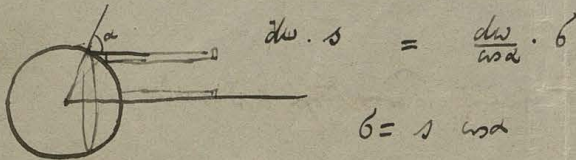 α
dω · s = dω/cosα · σ
σ = s cosα